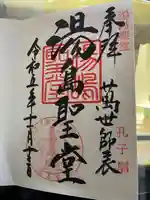 奉拝
萬世師表
孔子廟
湯島聖堂
令和五年十一月十三日